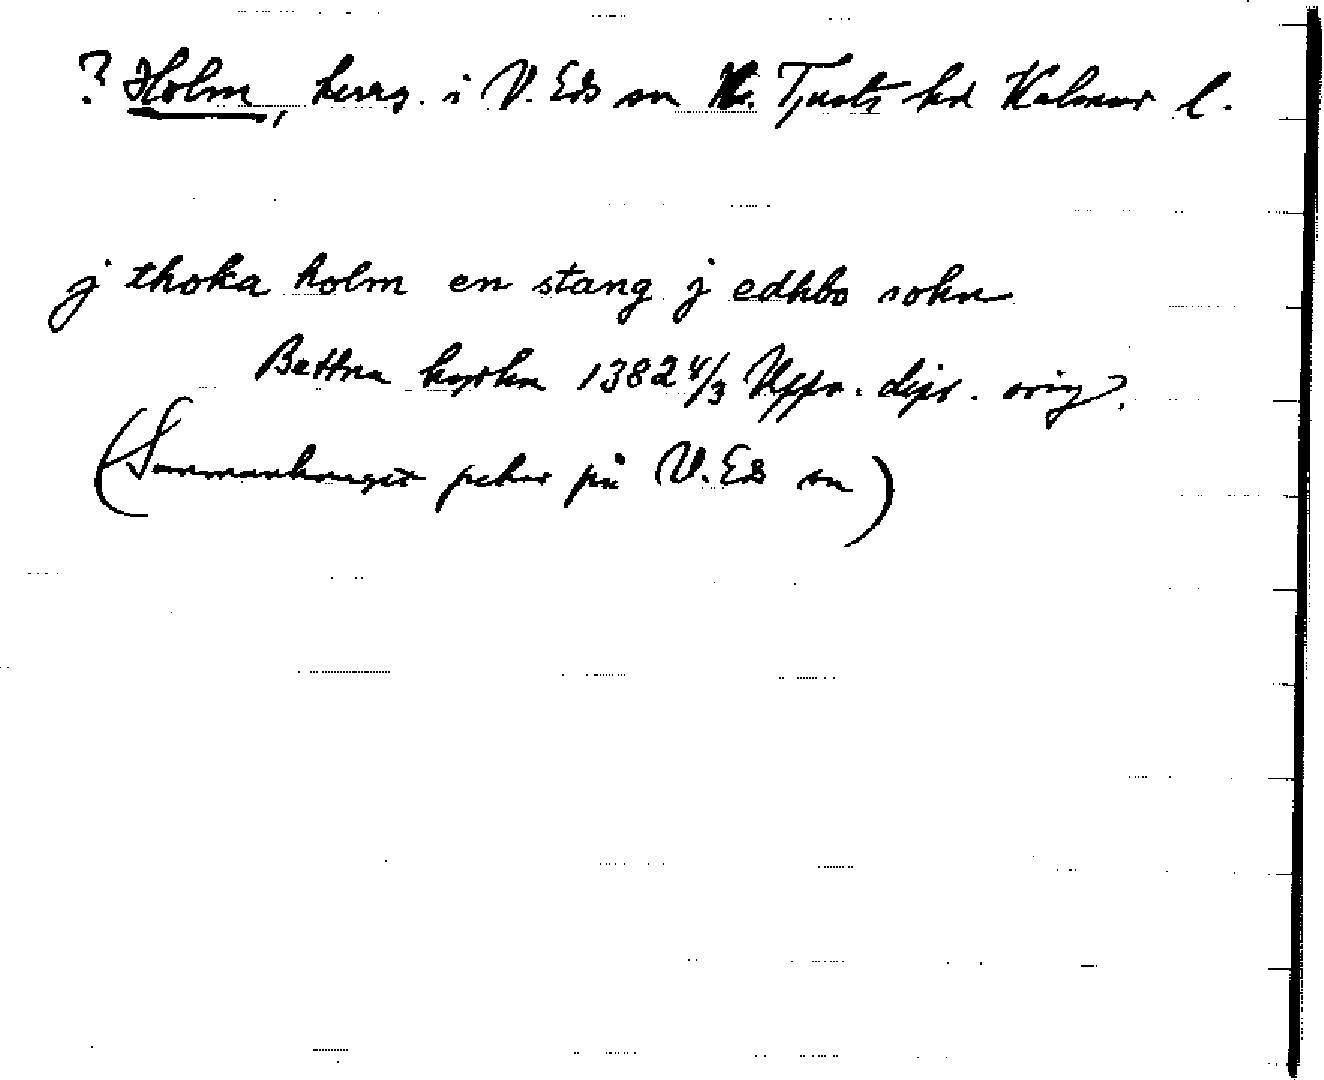 ? Holm, herrg. i V. Eds sn N. Tjusts hd Kalmar l.
j thoka holm en stang j edhbo sokn
Bettna kyrka 1382 4/3 Uppn. dipl. orig.
(Sammanhanget pekar på V. Eds sn)